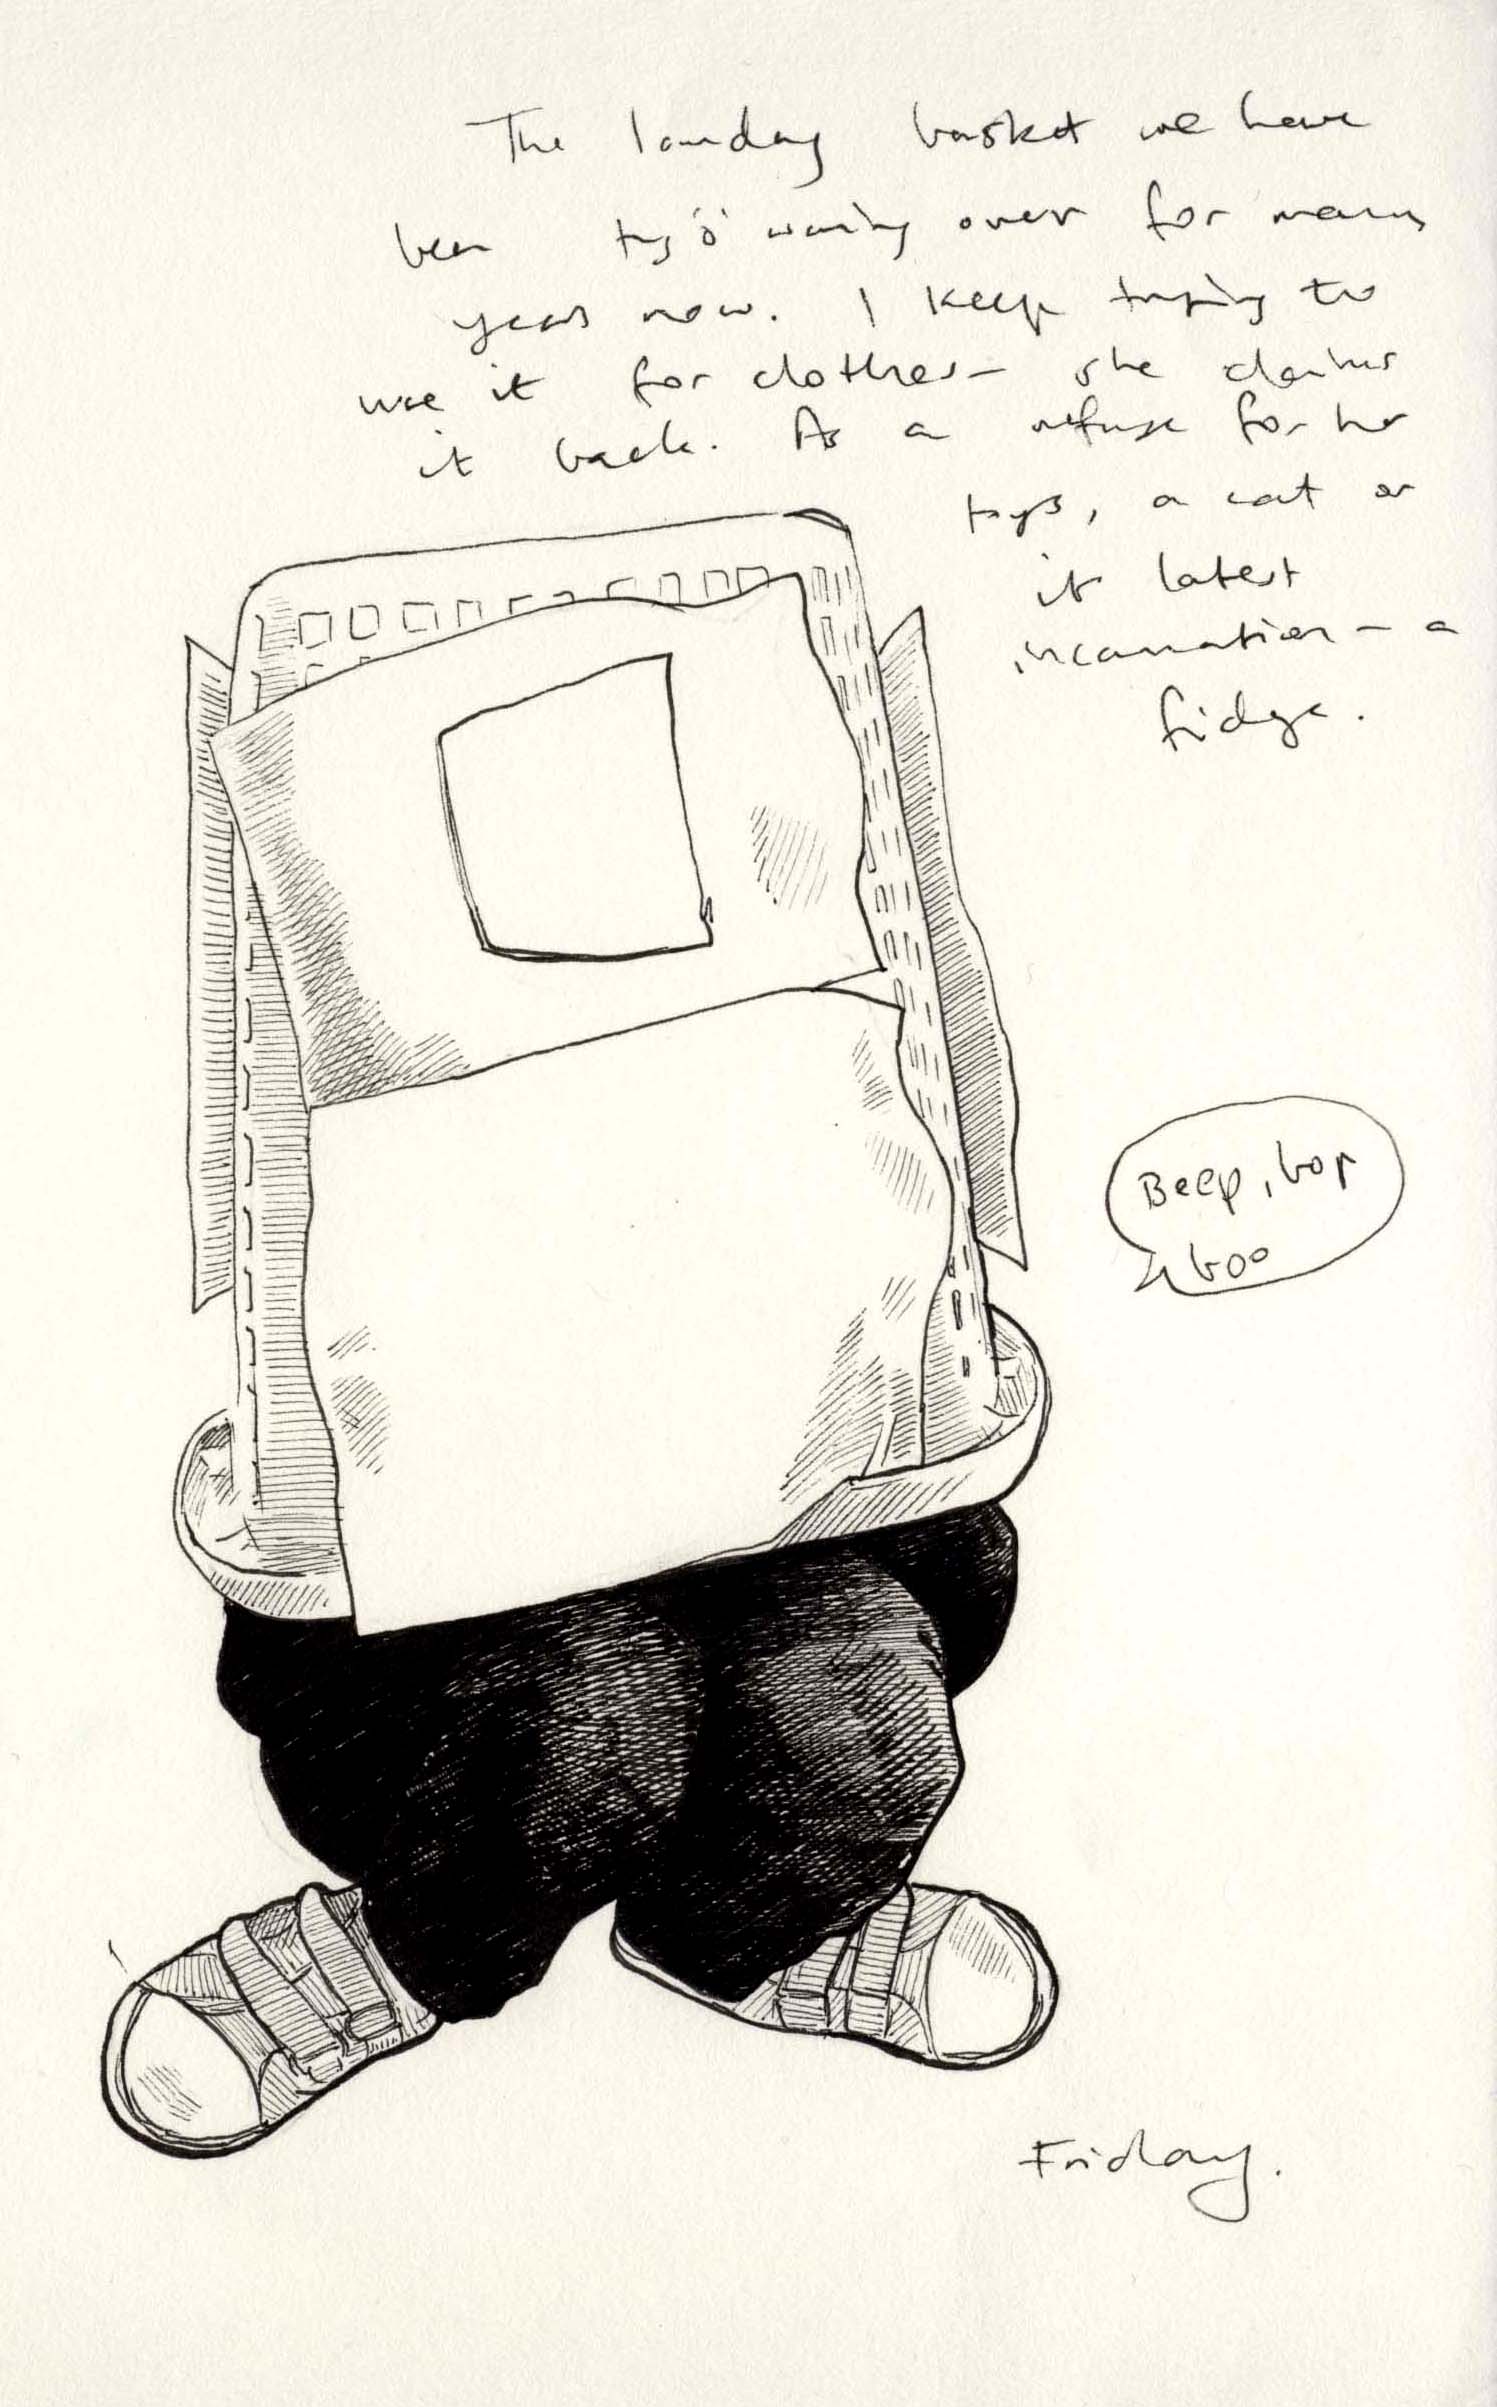 The laundry basket we have
been warring over for many
years now. I keep trying to
use it for clothes – she claims
it back. As a refuge for her
toys, a cat or
it latest
incarnation – a
fridge.
Beep, bop
boo
Friday.